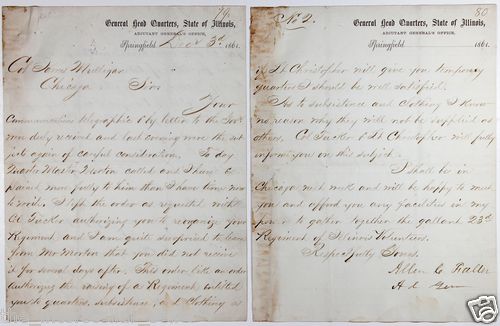 79
General Head Quarters, State of Illinois,
ADJUTANT GENERAL'S OFFICE,
Springfield, Decr 3d 1861.
Col James Mulligan
Chicago
Sir
Your
communications telegraphic & by letter to the Gov.
were duly received and last evening were the sub
ject again of careful consideration. To day
Quarter Master Morton called and I have ex
plained more fully to him than I have time now
to write. I left the order as requested with
Col Tucker authorizing you to reorganize your
Regiment and I am quite surprised to learn
from Mr Morton that you did not receive
it for several days after. This order like an order
authorizing the raising of a Regiment, entitled
you to quarters, subsistence, and Clothing &
No 2.
80
General Head Quarters, State of Illinois,
ADJUTANT GENERAL'S OFFICE,
Springfield, 1861.
if Lt Christopher will give you temporary
quarters I should be well satisfied.
As to subsistence and Clothing I know
no reason why they will not be supplied as
others. Col Tucker & Lt Christopher will fully
inform you on this subject.
I shall be in
Chicago next week and will be happy to meet
you and afford you any facilities in my
power to gather together the gallant 23d
Regiment of Illinois Volunteers.
Respectfully Yours,
Allen C Fuller
A d Gen